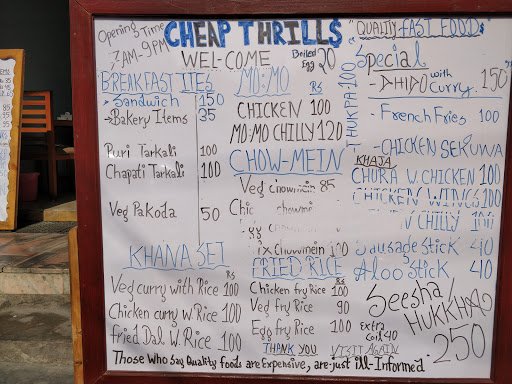 Opening Time
7AM-9PM
CHEAP THRILLS
"QUALITY FAST FOOD"
WEL-COME
Boiled
Egg 20
BREAKFAST ITES
RS
Sandwich 150
→Bakery Items 35
Puri Tarkali 100
Chapati Tarkali 100
Veg Pakoda 50
MO:MO
RS
CHICKEN 100
MO:MO CHILLY 120
THUKPA 100
CHOW-MEIN
Veg chowmein 85
Chic chowmei
chowmein 100
Special
-DHIDO with Curry. 150
-French Fries 100
-CHICKEN SEKUWA
KHAJA
CHURA W. CHICKEN 100
CHICKEN WINGS 100
CHILLY 100
Sausage Stick 40
Aloo Stick 40
KHANA SEI
RS
Veg curry with Rice 100
Chicken curry W. Rice 100
fried Dal W. Rice 100
FRIED RICE
RS
Chicken fry Rice 100
Veg fry Rice 90
Egg fry Rice 100
Seesha/
HUKKHA
Extra
Coil 40
250
THANK YOU VISIT AGAIN
Those who Say Quality foods are Expensive, are just ill-Informed.